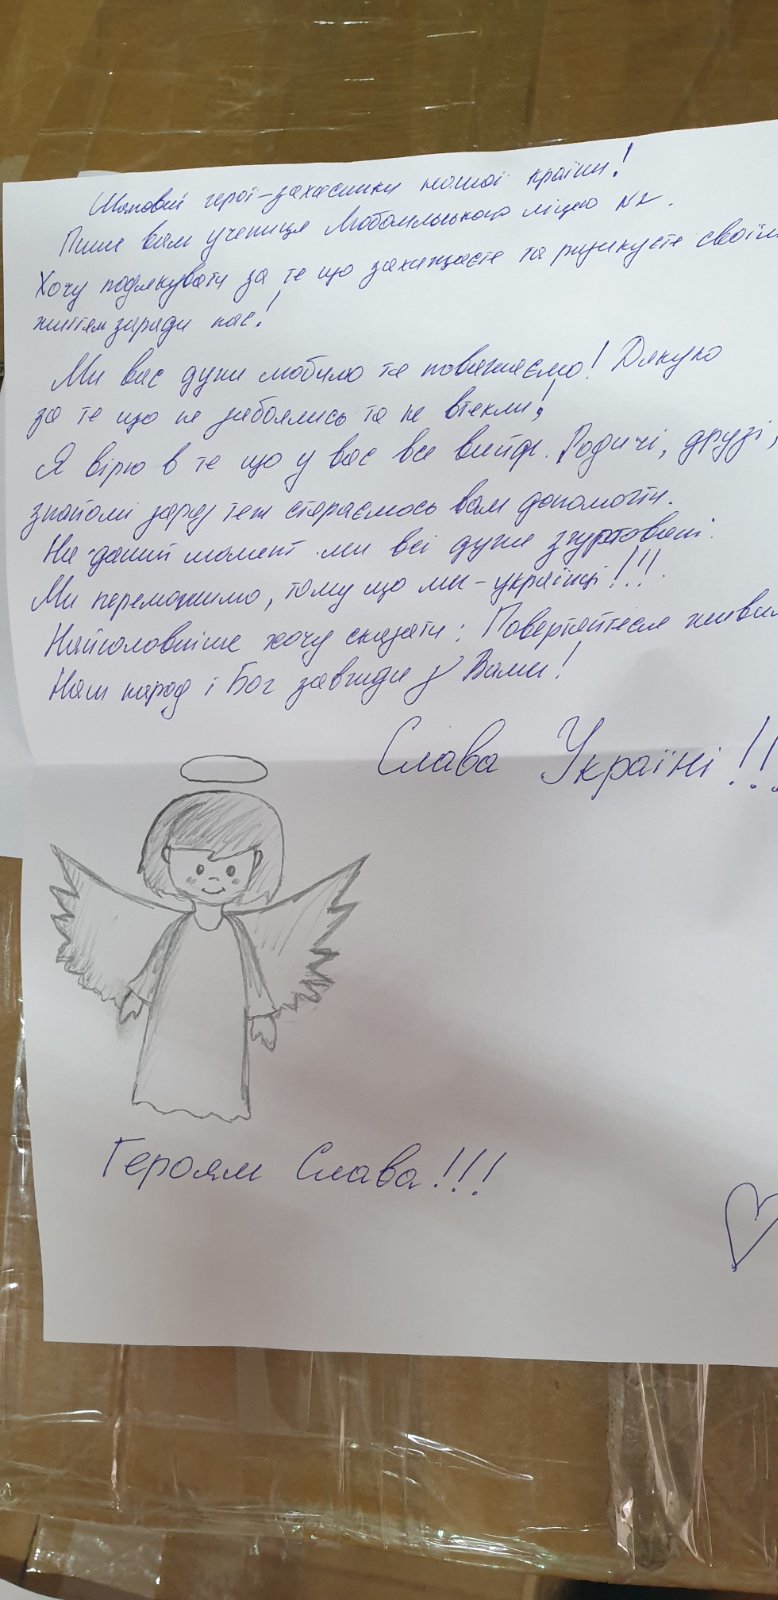 Шановні герої-захисники нашої країни!
Пише вам учениця Любомльського ліцею №2.
Хочу подякувати за те що захищаєте та ризикуєте своїм
життям заради нас!
Ми вас дуже любимо та поважаємо! Дякую
за те що не забоялись та не втекли!
Я вірю в те що у вас все вийде. Родичі, друзі,
знайомі зараз теж стараємось вам допомогти.
На даний момент ми всі дуже згуртовані.
Ми переможимо, тому що ми - українці!!!
Найголовніше хочу сказати: Повертайтеся живими
Наш народ і Бог завжди з Вами!
Слава Україні!!!
Героям Слава!!!